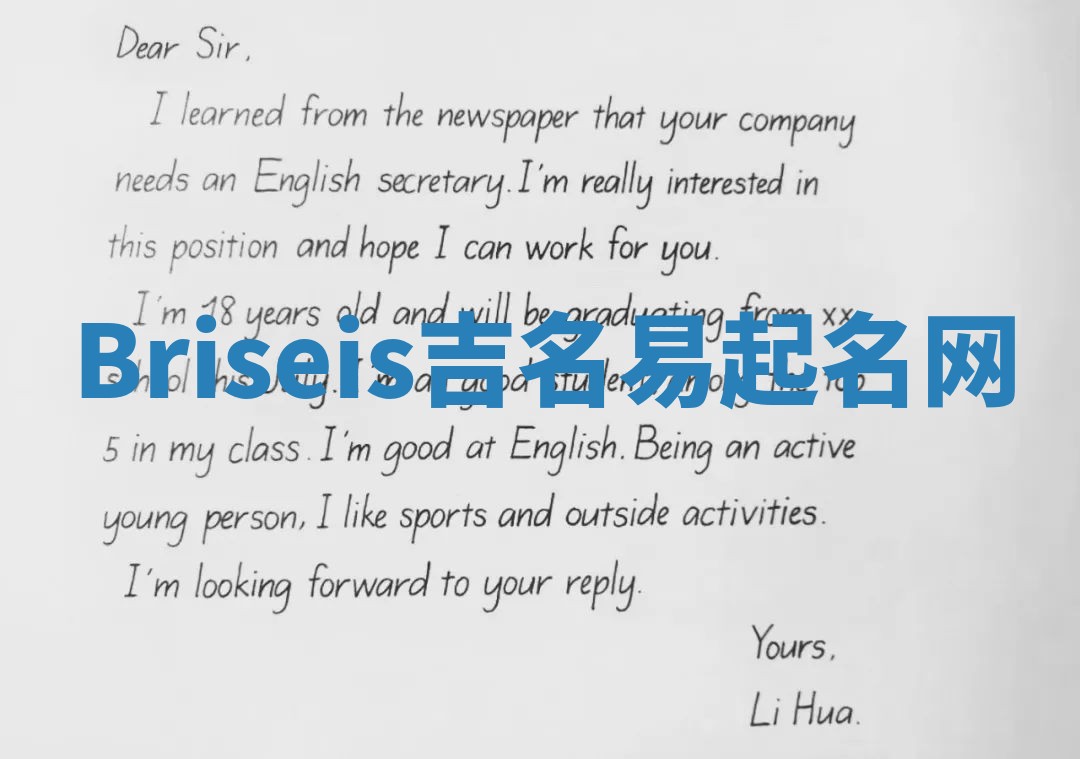 Dear Sir,
I learned from the newspaper that your company
needs an English secretary. I'm really interested in
this position and hope I can work for you.
I'm 18 years old and will be graduating from xx
Briseis吉名易起名网
school this July. I'm a good student among the top
5 in my class. I'm good at English. Being an active
young person, I like sports and outside activities.
I'm looking forward to your reply.
Yours,
Li Hua.